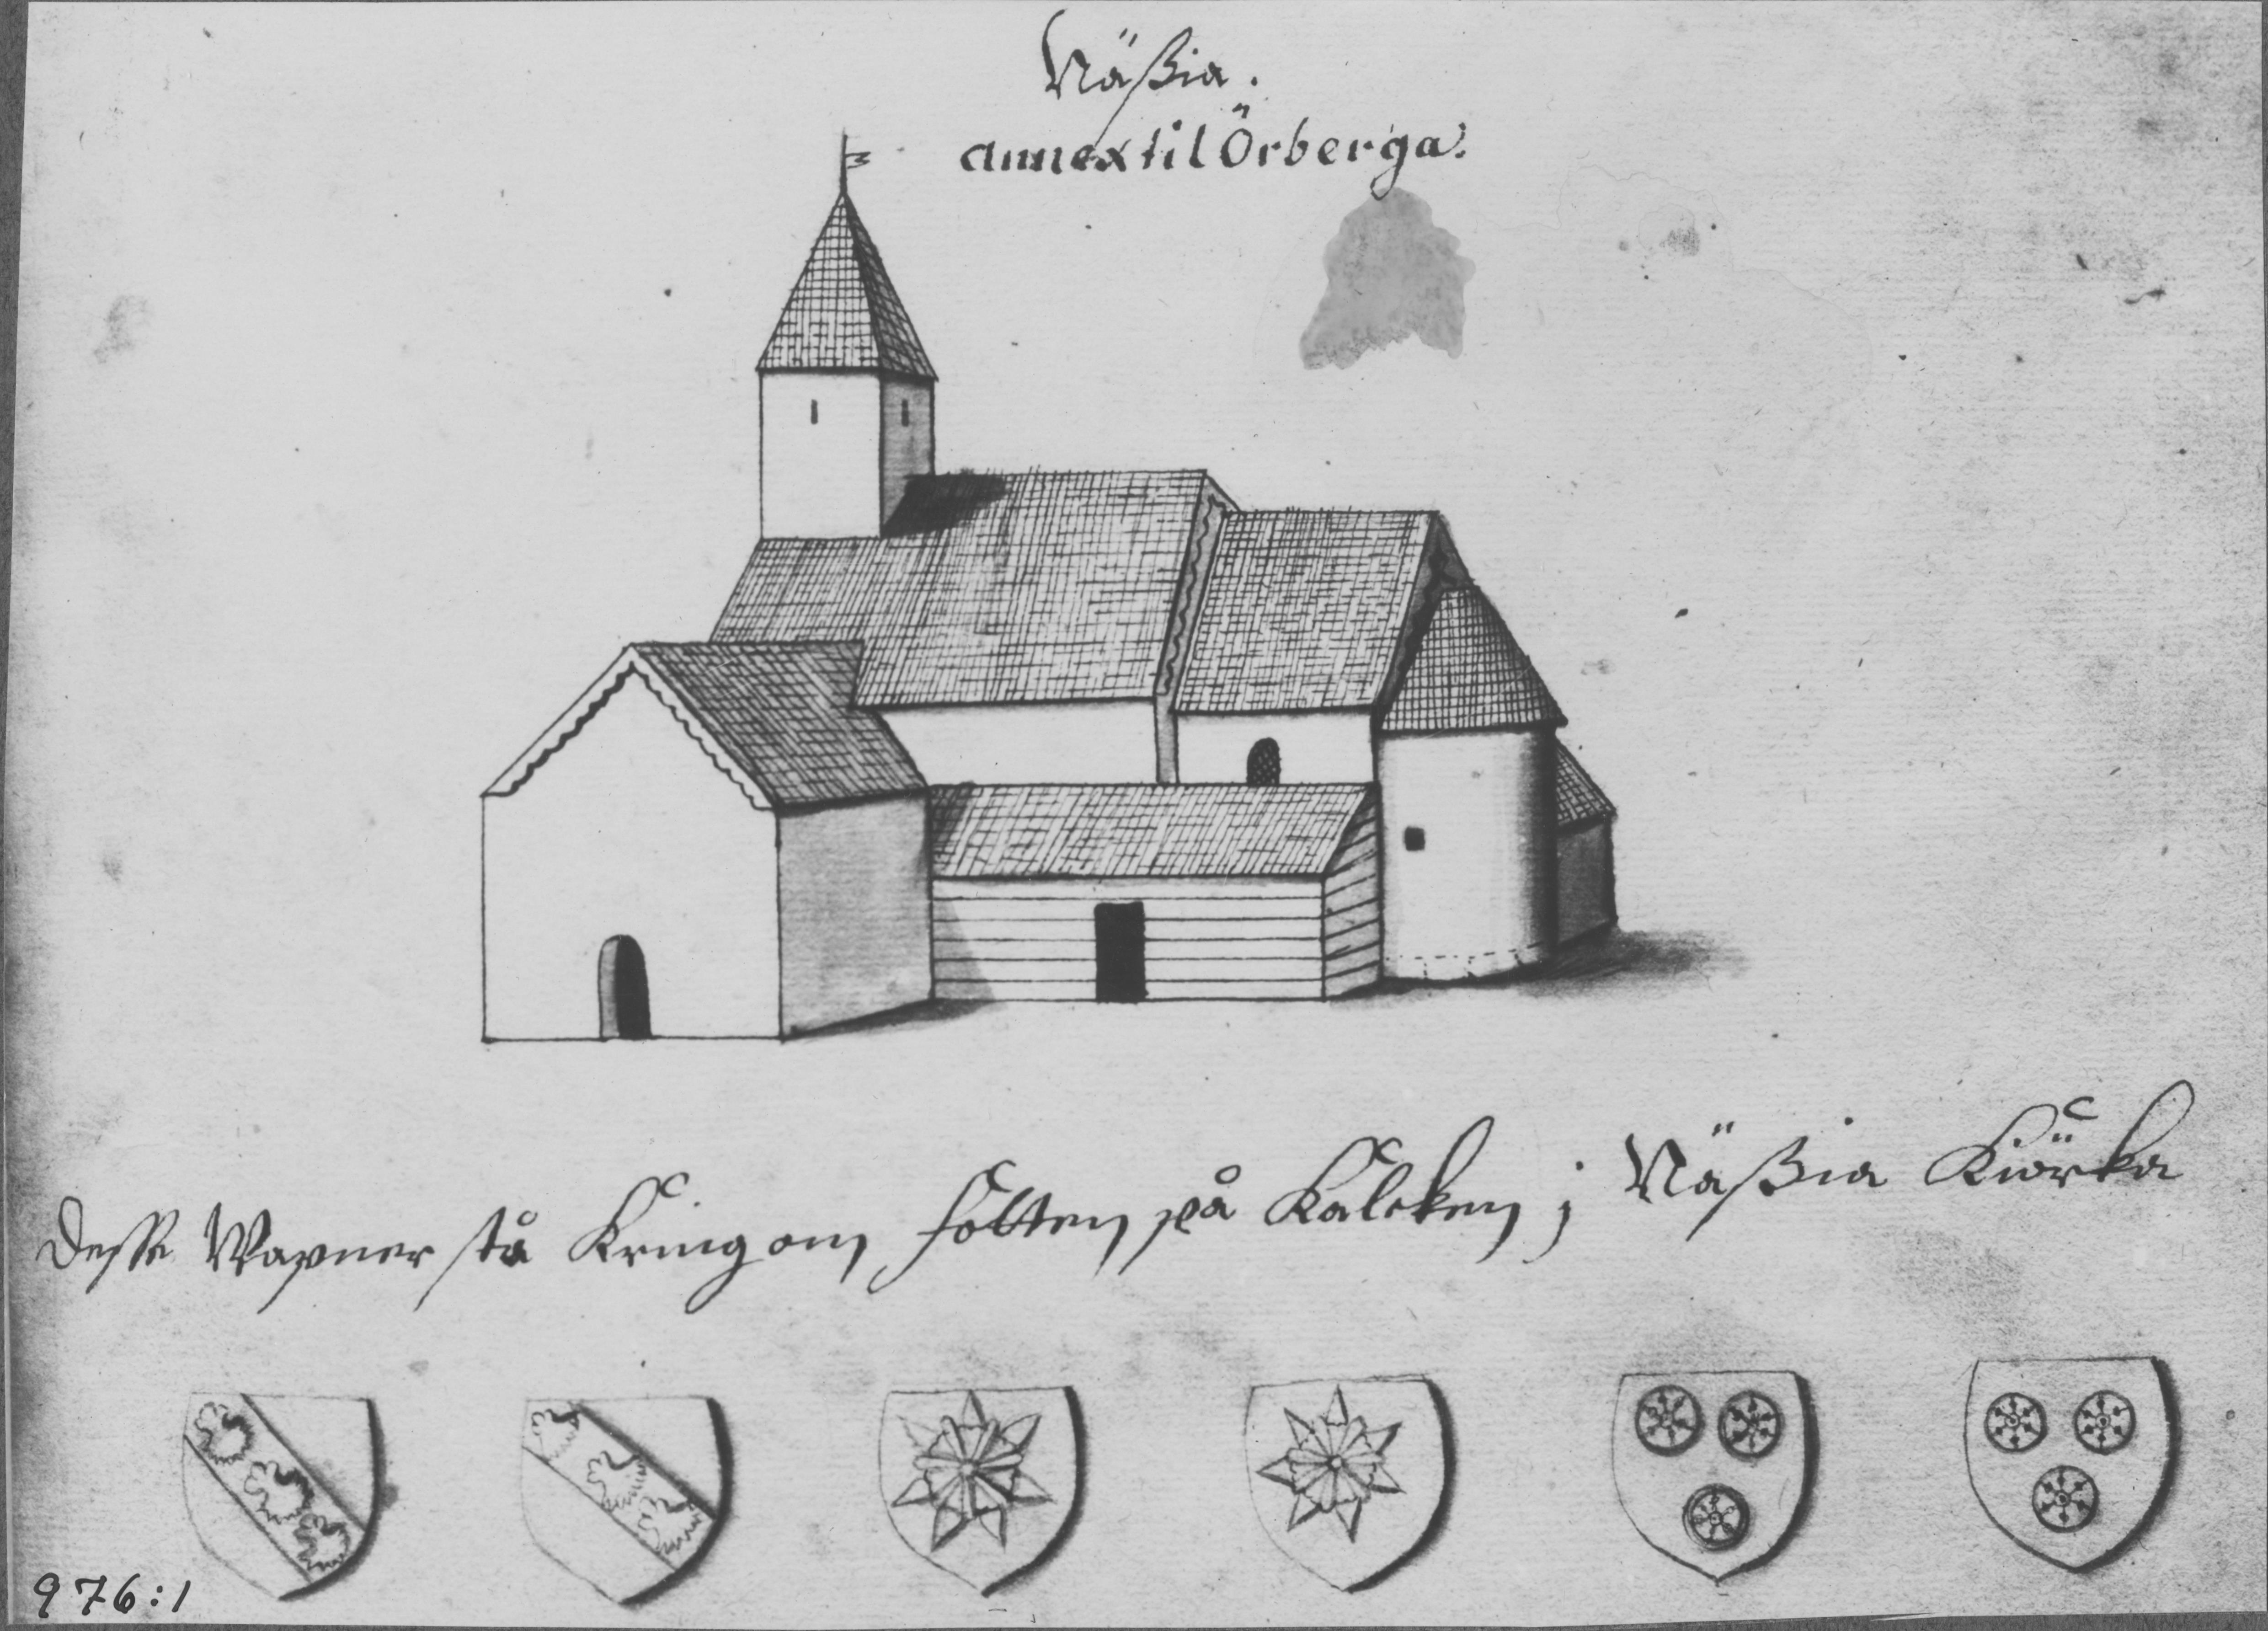 Näßia.
annex til Örberga.
Desse Wapner stå Kring om fotten på Kalcken j Näßia Kiörka
976:1